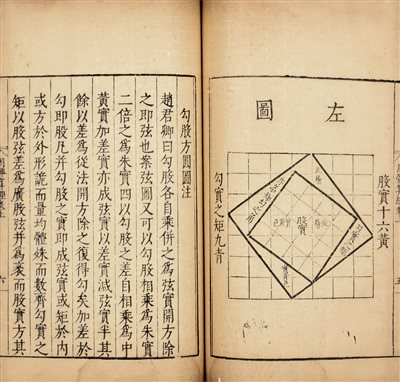 左圖
股實十六黃
股實
勾實之矩九青
勾股方圓圖注
趙君卿曰勾股各自乘併之爲弦實開方除
之即弦也案弦圖又可以勾股相乘爲朱實
二倍之爲朱實四以勾股之差自相乘爲中
黃實加差實亦成弦實以差實減弦實半其
餘以差爲從法開方除之復得勾矣加差於
勾即股凡并勾股之實即成弦實或矩於內
或方於外形詭而量均體殊而數齊勾實之
矩以股弦差爲廣股弦并爲袤而股實方其
六
五